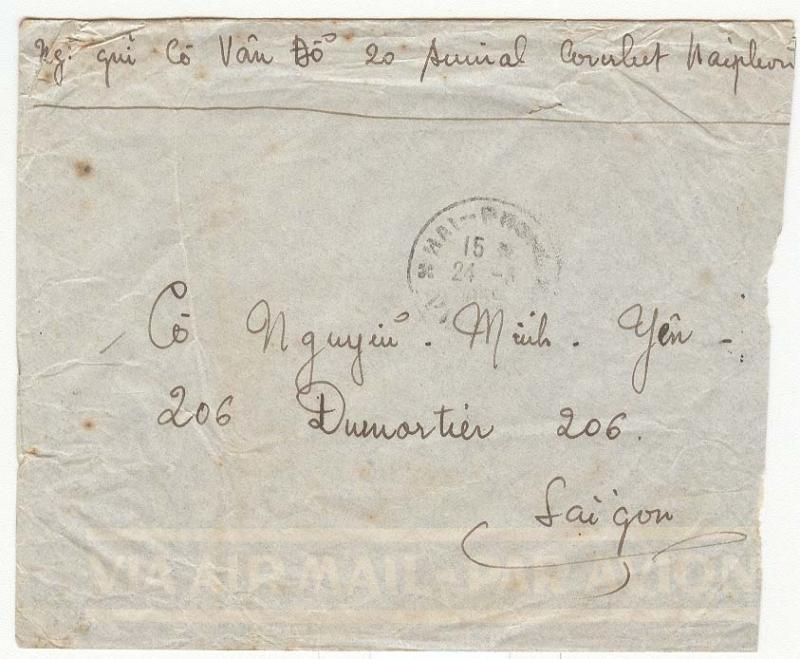 Ng: gửi Cô Vân Đồ 20 Amiral Courbet Haiphong
HAI-PHONG
15
24 -
Cô Nguyễn. Minh. Yên -
206 Dumortier 206.
Saigon
VIA AIR MAIL-PAR AVION